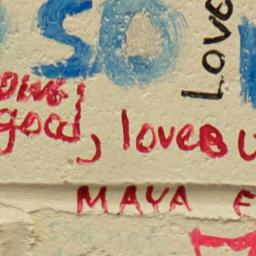 SO
Love
good, loveBU
MAYA E